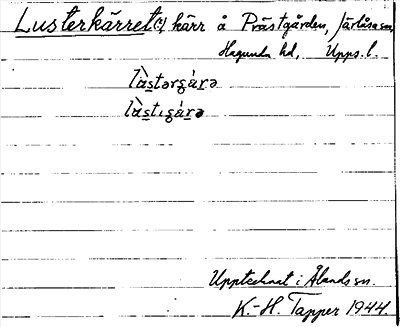 Lusterkärret(?), kärr å Prästgården, Järlåsa sn,
Hagunda hd, Upps. l.
làstərgárə
làstıgárə
Upptecknat i Ålands sn.
K.-H. Tapper 1944.